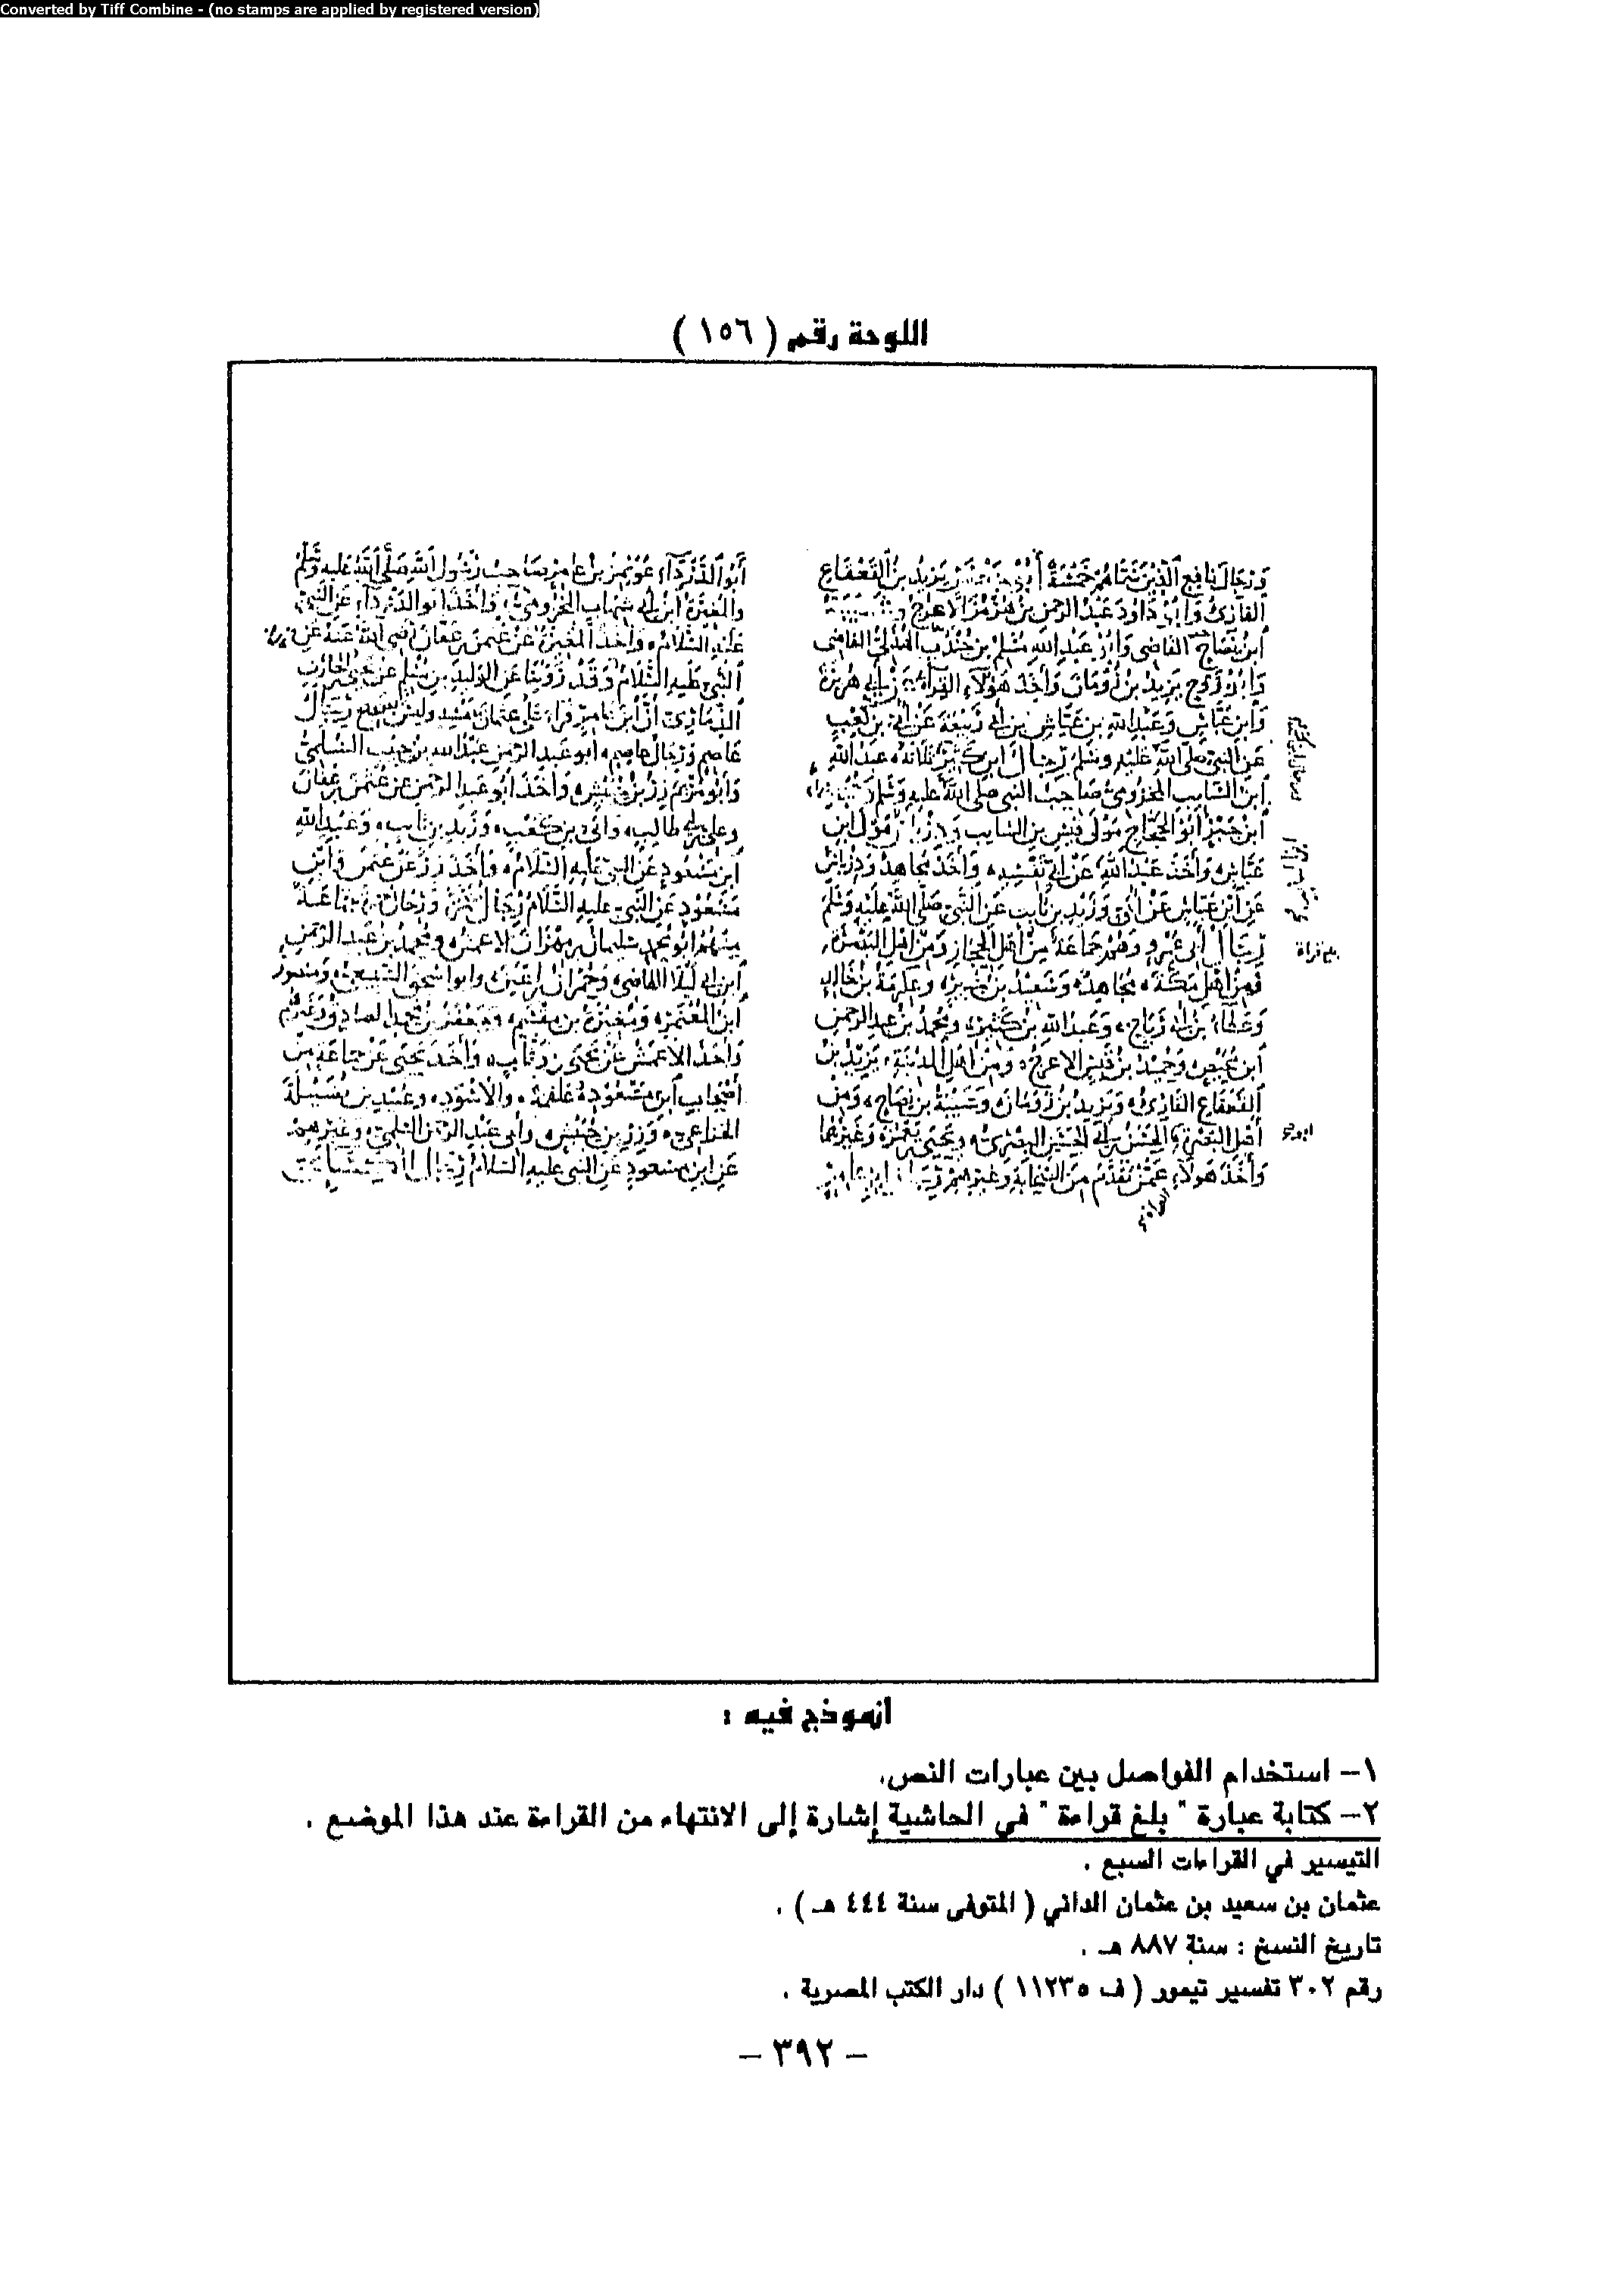 Converted by Tiff Combine - (no stamps are applied by registered version)
اللوحة رقم ( ١٥٦ )
ورجال نافع الذين سماهم خمسة أبو جعفر يزيد بن القعقاع
القارئ وأبو داود عبد الرحمن بن هرمز الاعرج
ابن نصاح القاضي وأبو عبد الله مسلم بن جندب الهذلي القاضي
وأبو روح يزيد بن رومان وأخذ هؤلاء القراءة عن أبي هريرة
وابن عباس وعبد الله بن عياش بن أبي ربيعة عن أبي بن كعب
عن النبي صلى الله عليه وسلم رجال ابن كثير ثلاثة عبد الله
ابن السايب المخزومي صاحب النبي صلى الله عليه وسلم
ابن جبير أبو الحجاج مولى قيس بن السايب ودرباس مولى ابن
عباس وأخذ عبد الله عن أبي نفسه وأخذ مجاهد ودرباس
عن ابن عباس عن أبي وزيد بن ثابت عن النبي صلى الله عليه وسلم
رجال أبي عمرو وهم جماعة من أهل الحجاز ومن أهل البصرة
فمن أهل مكة مجاهد وسعيد بن جبير وعكرمة بن خالد
وعطاء بن أبي رباح وعبد الله بن كثير ومحمد بن عبد الرحمن
ابن محيصن وحميد بن قيس الاعرج ومن أهل المدينة يزيد بن
القعقاع القارئ ويزيد بن رومان وشيبة بن نصاح ومن
أهل البصرة الحسن بن أبي الحسن البصري ويحيى بن يعمر وغيرهما
وأخذ هؤلاء عمن تقدم من الصحابة وغيرهم رجال ابن عامر
بلغ قراءة
أبو الدرداء عويمر بن عامر صاحب رسول الله صلى الله عليه وسلم
والمغيرة ابن أبي شهاب المخزومي وأخذ أبو الدرداء عن النبي
عليه السلام وأخذ المغيرة عن عثمن بن عفان رضي الله عنه عن
النبي عليه السلام وقد روينا عن الوليد بن مسلم عن يحيى بن الحارث
الذماري أن ابن عامر قرأ على عثمان نفسه وليس بصحيح رجال
عاصم ورجال عاصم أبو عبد الرحمن عبد الله بن حبيب السلمي
وأبو مريم زر بن حبيش وأخذ أبو عبد الرحمن عن عثمن بن عفان
وعلي بن أبي طالب وأبي بن كعب وزيد بن ثابت وعبد الله
ابن مسعود عن النبي عليه السلام وأخذ زر عن عثمن وابن
مسعود عن النبي عليه السلام رجال حمزة ورجال حمزة جماعة
منهم أبو محمد سليمان بن مهران الاعمش ومحمد بن عبد الرحمن
ابن أبي ليلا القاضي وحمران بن أعين وأبو اسحق السبيعي ومنصور
ابن المعتمر ومغيرة بن مقسم وجعفر بن محمد الصادق وغيرهم
وأخذ الاعمش عن يحيى بن وثاب وأخذ يحيى عن جماعة من
أصحاب ابن مسعود علقمة والاسود وعبيد بن نضيلة
الخزاعي وزر بن حبيش وأبي عبد الرحمن السلمي وغيرهم
عن ابن مسعود عن النبي عليه السلام رجال الكسائي
انموذج فيه :
١- استخدام الفواصل بين عبارات النص.
٢- كتابة عبارة " بلغ قراءة " في الحاشية إشارة إلى الانتهاء من القراءة عند هذا الموضع .
التيسير في القراءات السبع .
عثمان بن سعيد بن عثمان الداني ( المتوفى سنة ٤٤٤ هـ ) .
تاريخ النسخ : سنة ٨٨٧ هـ .
رقم ٣٠٢ تفسير تيمور ( ف ١١٢٣٥ ) دار الكتب المصرية .
- ٣٩٢ -